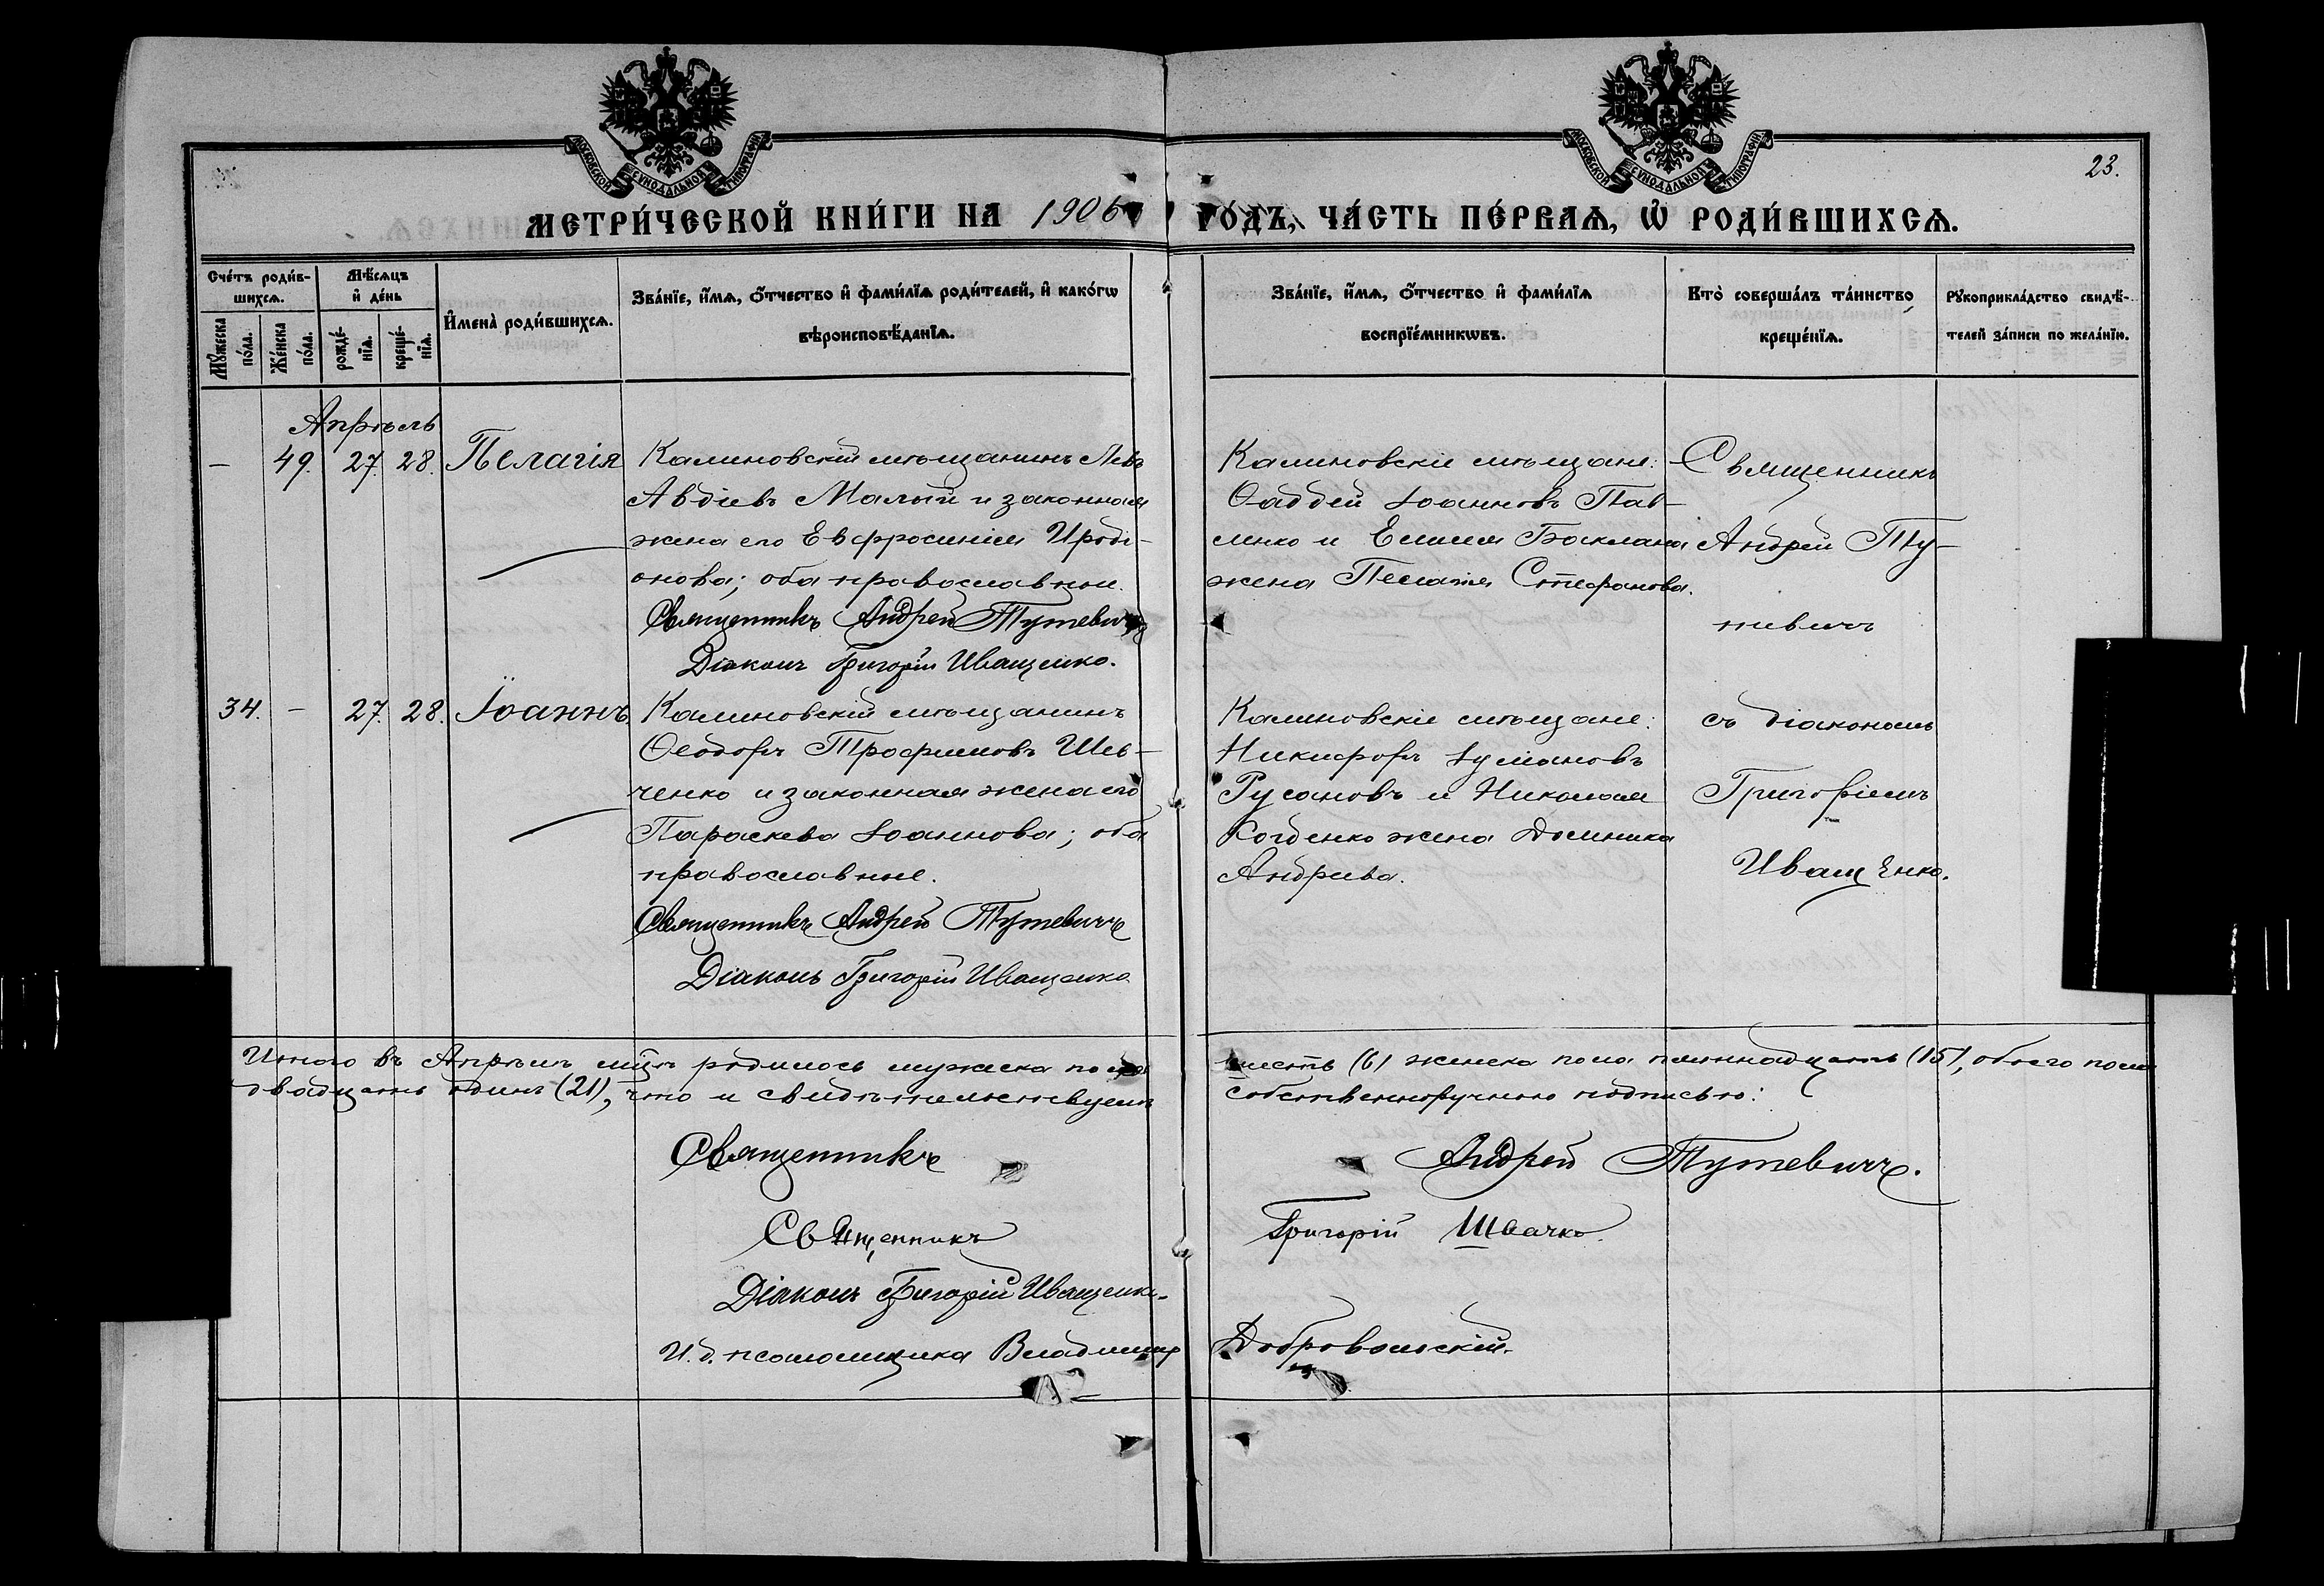 МОСКОВСКОЙ СѴНОДАЛЬНОЙ ТИПОГРАФІИ
МОСКОВСКОЙ СѴНОДАЛЬНОЙ ТИПОГРАФІИ
23.
МЕТРИ́ЧЕСКОЙ КНИ́ГИ НА 1906 ГО́ДЪ, ЧА́СТЬ ПЕ́РВАѦ, Ѡ҆ РОДИ́ВШИХСѦ.
Сче́тъ роди́в-
шихсѧ.
Мꙋжеска по́ла.
Же́нска по́ла.
Мѣ́сѧцъ
и҆ де́нь
рожде́-
нїѧ.
креще́-
нїѧ.
И҆мена̀ роди́вшихсѧ.
Зва́нїе, и҆́мѧ, о҆́тчество и҆ фами́лїѧ роди́телей, и҆ како́гѡ
вѣроисповѣ́данїѧ.
Зва́нїе, и҆́мѧ, о҆́тчество и҆ фами́лїѧ
воспрїе́мникѡвъ.
Кто̀ соверша́лъ та́инство
креще́нїѧ.
Рꙋкоприкла́дство свидѣ́-
телей за́писи по жела́нїю.
Апрѣль
— 49. 27. 28. Пелагія
Калиновскій мѣщанинъ Левъ
Авдіевъ Малый и законная
жена его Евфросинія Ироді-
онова; оба православные.
Священникъ Андрей Тутевичъ
Діаконъ Григорій Иващенко.
Калиновскіе мѣщане:
Ѳаддей Іоанновъ Пав-
ленко и Емилія Баклана
жена Пелагія Стефанова.
Священникъ
Андрей Ту-
тевичъ
34. — 27. 28. Іоаннъ
Калиновскій мѣщанинъ
Ѳеодоръ Трофимовъ Шев-
ченко и законная жена его
Параскева Іоаннова; оба
православные.
Священникъ Андрей Тутевичъ
Діаконъ Григорій Иващенко
Калиновскіе мѣщане:
Никифоръ
Русановъ и Николая
жена Домника
Андреева.
съ діакономъ
Григоріемъ
Иващенко.
Итого въ Апрѣлѣ мцѣ родилось мужеска пола шесть (6) женска пола пятнадцать (15), обоего пола
двадцать одинъ (21), что и свидѣтельствуемъ собственноручною подписью:
Священникъ Андрей Тутевичъ.
Священникъ Григорій Швачко.
Діаконъ Григорій Иващенко.
И. д. псаломщика Владимир Добровольскій.